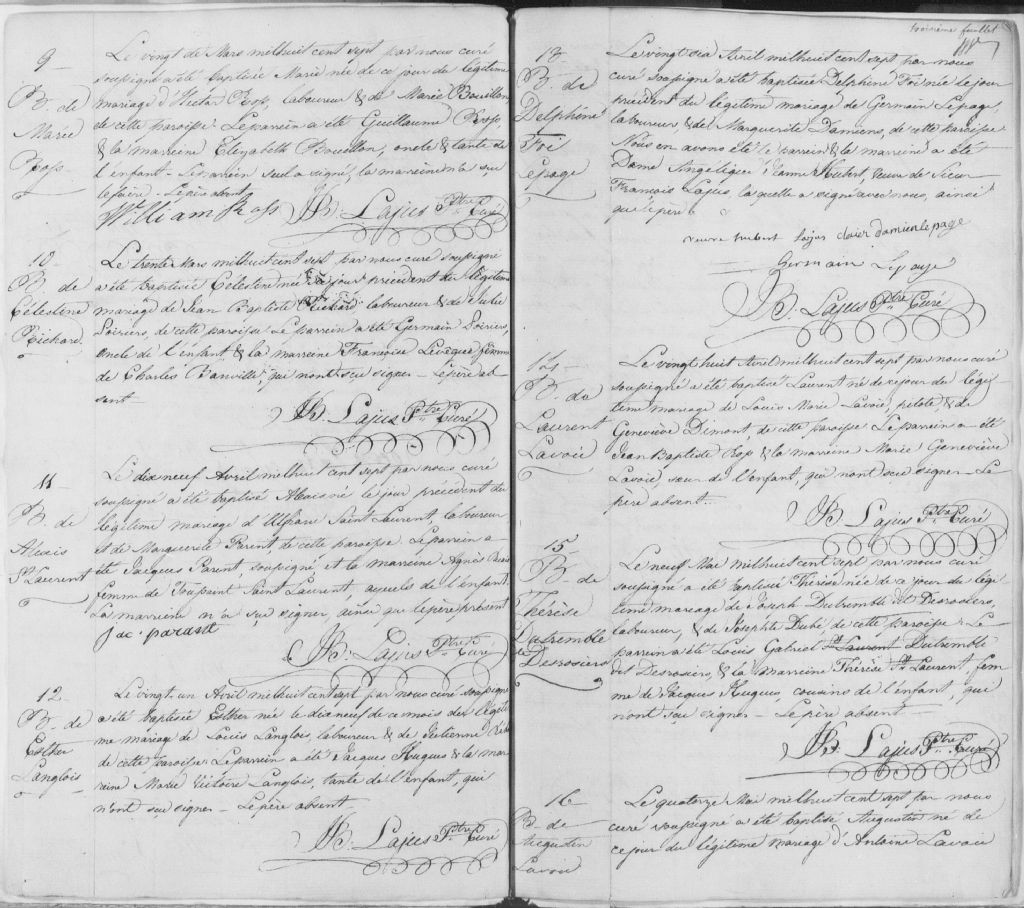 9
B. de
Marie
Ross
Le vingt de Mars mil huit cent sept par nous curé
soupigné a été baptisée Marie née de ce jour du légitime
mariage d'Hector Ross, laboureur & de Marie Bouillon,
de cette paroisse. Le parrein a été Guillaume Ross,
& la marreine Elizabeth Bouillon, oncle & tante de
l'enfant. Le parrein seul a signé, la marreine n'a su
le faire. Le père absent
William Ross JB. Lajus Ptre Curé
10
B. de
Célestine
Richard
Le trente Mars mil huit cent sept par nous curé soupigné
a été baptisée Célestine née le jour précédent du légitime
mariage de Jean Baptiste Richard laboureur & de Julie
Soiriers, de cette paroisse Le parrein a été Germain Soiriers,
oncle de l'enfant & la marreine Françoise Levêque femme
de Charles Banville, qui n'ont su signer - Le père ab-
sent
JB. Lajus Ptre Curé
11
B. de
Alexis
St Laurent
Le dixneuf Avril mil huit cent sept par nous curé
soupigné a été baptisé Alexis né le jour précédent du
légitime mariage d' Saint Laurent, laboureur
et de Marguerite Parent, de cette paroisse. Le parrein a
été Jacques Parent, soupigné, et la marreine Agnès
femme de Toussaint Saint Laurent, ayeuls de l'enfant.
La marreine n'a su signer, ainsi que le père présent
Jac. parant
JB. Lajus Ptre Curé
12
B. de
Esther
Langlois
Le vingt un Avril mil huit cent sept par nous curé soupigné
a été baptisée Esther née le dixneuf de ce mois du légiti
me mariage de Louis Langlois, laboureur & de Julienne
de cette paroisse Le parrein a été Jacques Hugues & la mar-
reine Marie Victoire Langlois, tante de l'enfant, qui
n'ont su signer - Le père absent
JB. Lajus Ptre Curé
troisième feuillet
13
B. de
Delphine
Foi
Lepage
Le vingt six Avril mil huit cent sept par nous
curé soupigné a été baptisée Delphine Foi née le jour
précédent du légitime mariage de Germain Lepage,
laboureur, & de Marguerite Damiens, de cette paroisse
Nous en avons été le parrein & la marreine a été
Dame Angélique Jeanne Hubert, veuve de Sieur
François Lajus, laquelle a signé avec nous, ainsi
que le père
veuve hubert lajus damien lepage
Germain Lepage
JB. Lajus Ptre Curé
14
B. de
Laurent
Lavoie
Le vingt huit Avril mil huit cent sept par nous curé
soupigné a été baptisé Laurent né de ce jour du légi-
time mariage de Louis Marie Lavoie, pilote, & de
Geneviève Dimont, de cette paroisse Le parrein a été
Jean Baptiste Ross & la marreine Marie Geneviève
Lavoie sœur de l'enfant, qui n'ont su signer - Le
père absent.
JB Lajus Ptre Curé
15
B. de
Thérèse
Dutremble
Desrosiers
Le neuf Mai mil huit cent sept par nous curé
soupigné a été baptisée Thérèse née de ce jour du légi-
time mariage de Joseph Dutremble dit Desrosiers,
laboureur, & de Josephte Dubé de cette paroisse - Le
parrein a été Louis Gabriel St Laurent Dutremble
dit Desrosiers, & la marreine Thérèse St Laurent fem-
me de Jacques Hugues, cousins de l'enfant, qui
n'ont su signer - Le père absent
JB. Lajus Ptre Curé
16
B. de
Augustin
Lavoie
Le quatorze Mai mil huit cent sept par nous
curé soupigné a été baptisé Augustin né de
ce jour du légitime mariage d'Antoine Lavoie